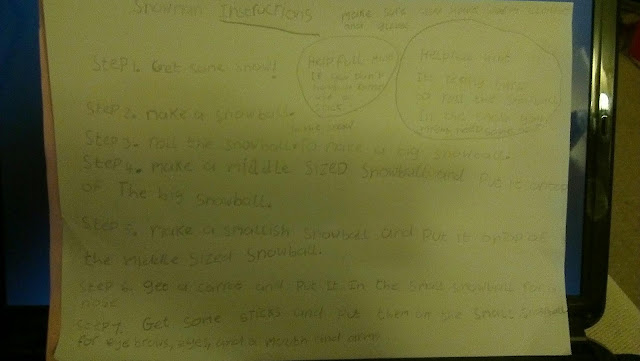 Snowman Instructions
make sure you have warm clothes
and gloves
Step 1. Get some snow!
Helpfull Hint
If you don't
have a
use a
stick
Helpfull hint
Its really
to roll the snowball
In the snow you
Step 2. make a snowball.
In the snow
Step 3. roll the snowball to make a big snowball.
Step 4. make a middle sized snowball and put it ontop
of The big snowball.
Step 5. make a smallish snowball and put it ontop of
the middle sized snowball.
Step 6. get a carrot and put it in the small snowball for a
nose
Step 7. Get some sticks and put them on the small snowball
for eyebrows, eyes, and a mouth and arms